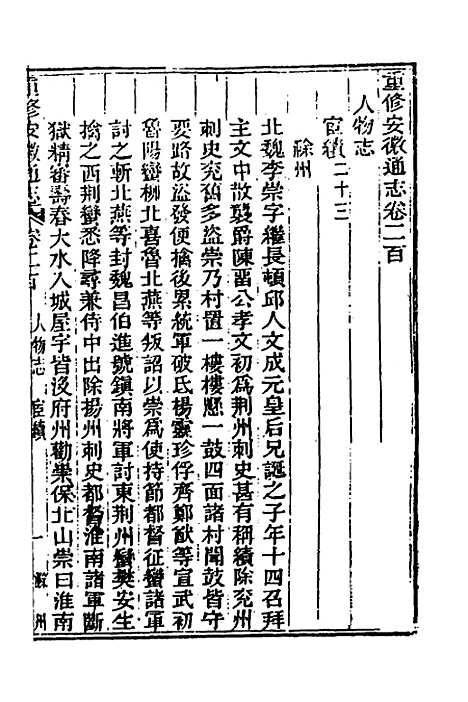 重修安徽通志卷二百
人物志
宦績二十三
滁州
北魏李崇字繼長頓邱人文成元皇后兄誕之子年十四召拜
主文中散襲爵陳畱公孝文初為荆州刺史甚有稱績除兖州
刺史兖舊多盜崇乃村置一樓樓懸一鼓四面諸村聞鼓皆守
要路故盜發便擒後累統軍破氐楊靈珍俘齊鄭猷等宣武初
魯陽蠻柳北喜魯北燕等叛詔以崇爲使持節都督征蠻諸軍
討之斬北燕等封魏昌伯進號鎮南將軍討東荆州蠻樊安生
擒之西荆蠻悉降尋兼侍中出除揚州刺史都督淮南諸軍斷
獄精審壽春大水入城屋宇皆没府州勸棄保北山崇曰淮南
重修安徽通志 卷二百 人物志 宦績 一 滁州